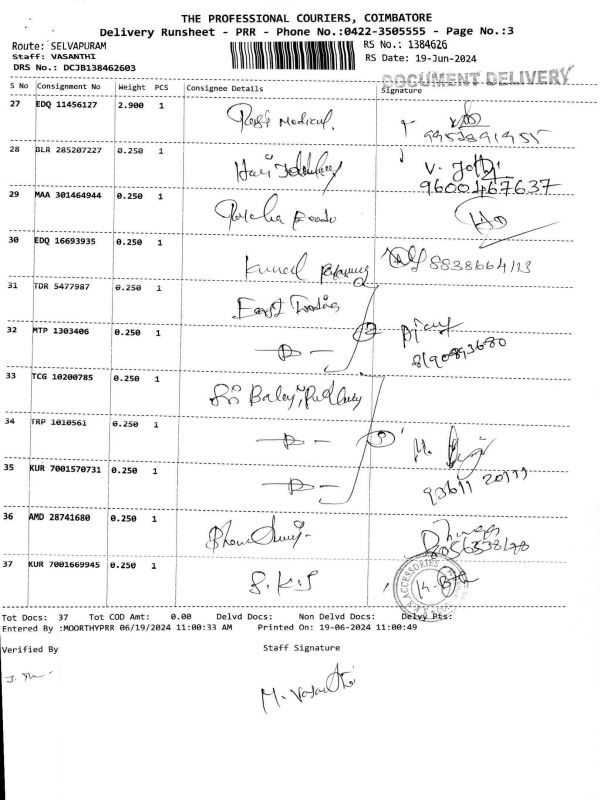 THE PROFESSIONAL COURIERS, COIMBATORE
Delivery Runsheet - PRR - Phone No.:0422-3505555 - Page No.:3
Route: SELVAPURAM RS No.: 1384626
Staff: VASANTHI RS Date: 19-Jun-2024
DRS No.: DCJB138462603 DOCUMENT DELIVERY
S No Consignment No Weight PCS Consignee Details Signature
27 EDQ 11456127 2.900 1 Medical.
28 BLR 285207227 0.250 1 Hari
V. Jothi
9600467637
29 MAA 301464944 0.250 1
30 EDQ 16693935 0.250 1
31 TDR 5477987 0.250 1 East Trading
32 MTP 1303406 0.250 1 - D -
8190893680
33 TCG 10200785 0.250 1 Sri
34 TRP 1010561 0.250 1 - D - M.
35 KUR 7001570731 0.250 1 - D -
36 AMD 28741680 0.250 1
37 KUR 7001669945 0.250 1 S.K.S
ACCESSORIES
Tot Docs: 37 Tot COD Amt: 0.00 Delvd Docs: Non Delvd Docs: Delvy Pts:
Entered By :MOORTHYPRR 06/19/2024 11:00:33 AM Printed On: 19-06-2024 11:00:49
Verified By Staff Signature
M. Vasanthi